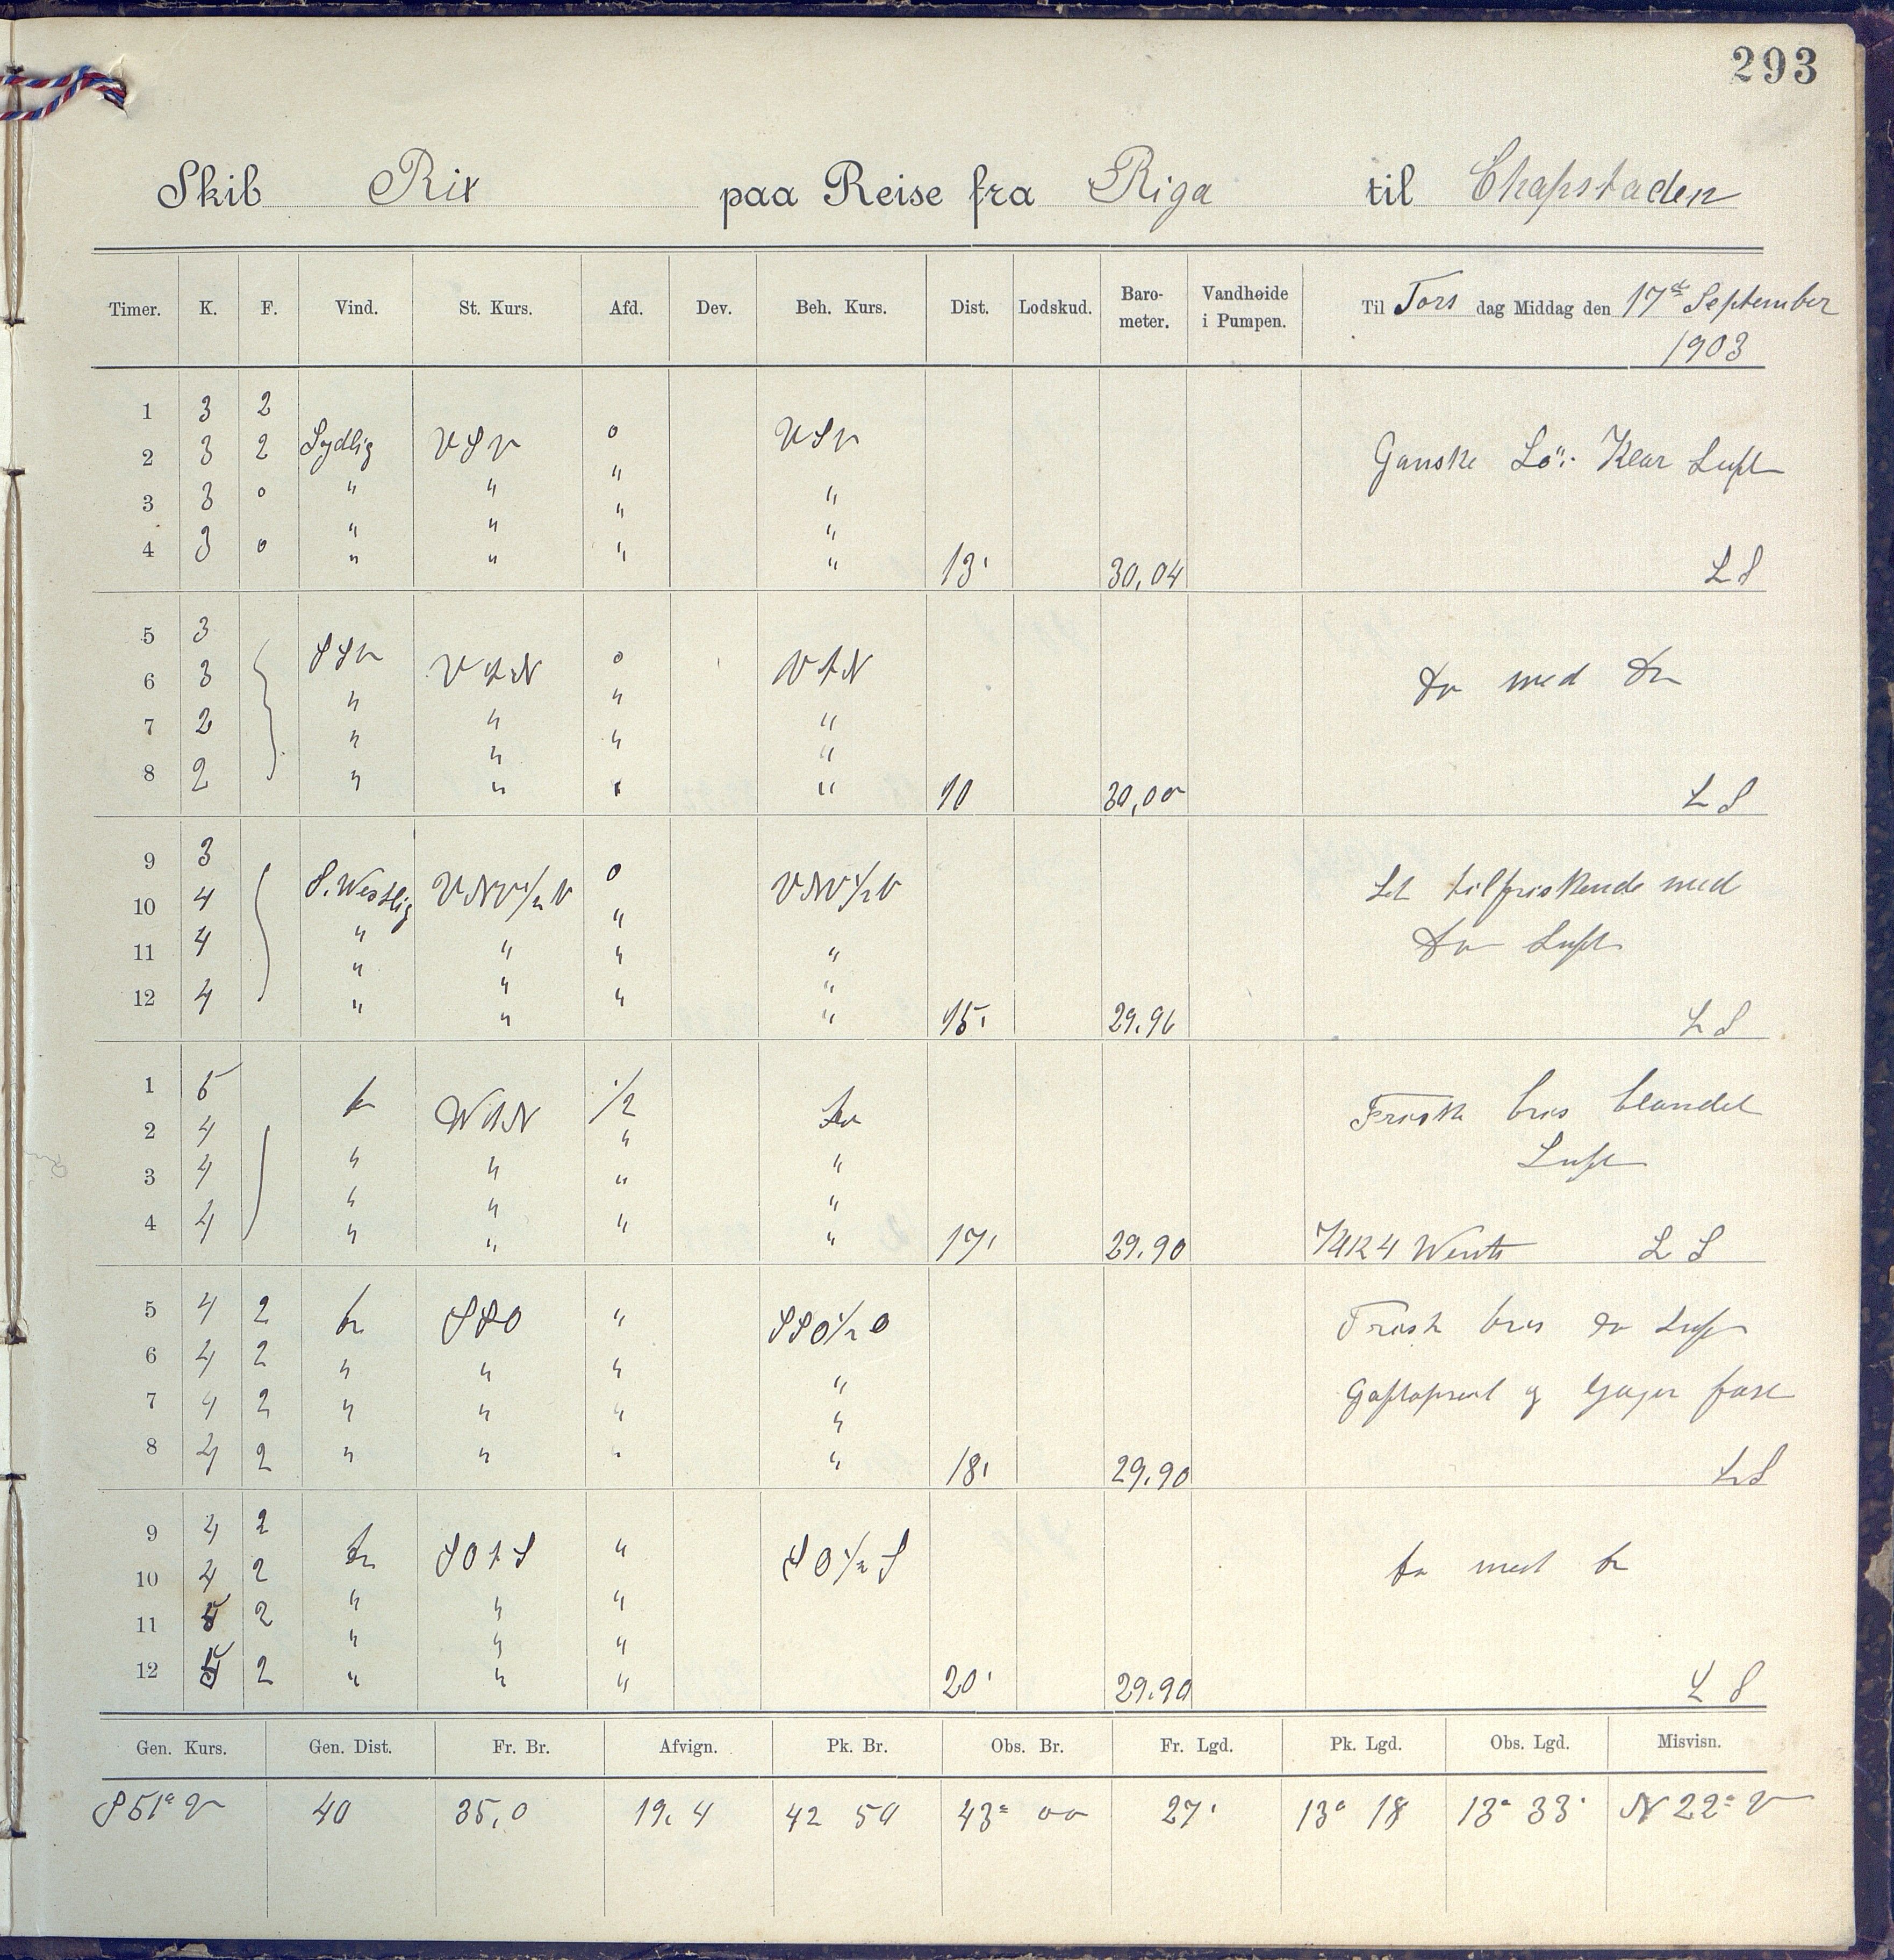 293
Skib Rix paa Reise fra Riga til Chapstaden
Timer. K. F. Vind. St. Kurs. Afd. Dev. Beh. Kurs. Dist. Lodskud. Baro-meter. Vandhøide i Pumpen. Til Tors dag Middag den 17de September
1903
1 3 2
2 3 2 Sydlig VSV o VSV Ganske Lö: Klar Luft
3 3 o " " " "
4 3 o " " " " 13' 30,04 L S
5 3
6 3 SSV VtN o VtN do med do
7 2 " " " "
8 2 " " " " 10 30,00 L S
9 3
10 4 S. Westlig VNV 1/2 V o VNV 1/2 V Let tilfriskende med
11 4 " " " " do Luft
12 4 " " " " 15' 29.96 L S
1 5 do WtN 1/2 do Frisk bris blandet
2 4 " " " " Luft
3 4 " " " "
4 4 " " " " 17' 29.90 L S
5 4 2 do SSO " SSO 1/2 O Frisk bris do Luft
6 4 2 " " " "
7 4 2 " " " " og fast
8 4 2 " " " " 18' 29.90 L S
9 4 2
10 4 2 do SOtS " SO 1/2 S do med do
11 5 2 " " "
12 5 2 " " " 20' 29.90 L S
Gen. Kurs. Gen. Dist. Fr. Br. Afvign. Pk. Br. Obs. Br. Fr. Lgd. Pk. Lgd. Obs. Lgd. Misvisn.
S 51° V 40 35,0 19,4 42 50 43° 00 27' 13° 18 13° 33' N 22° V